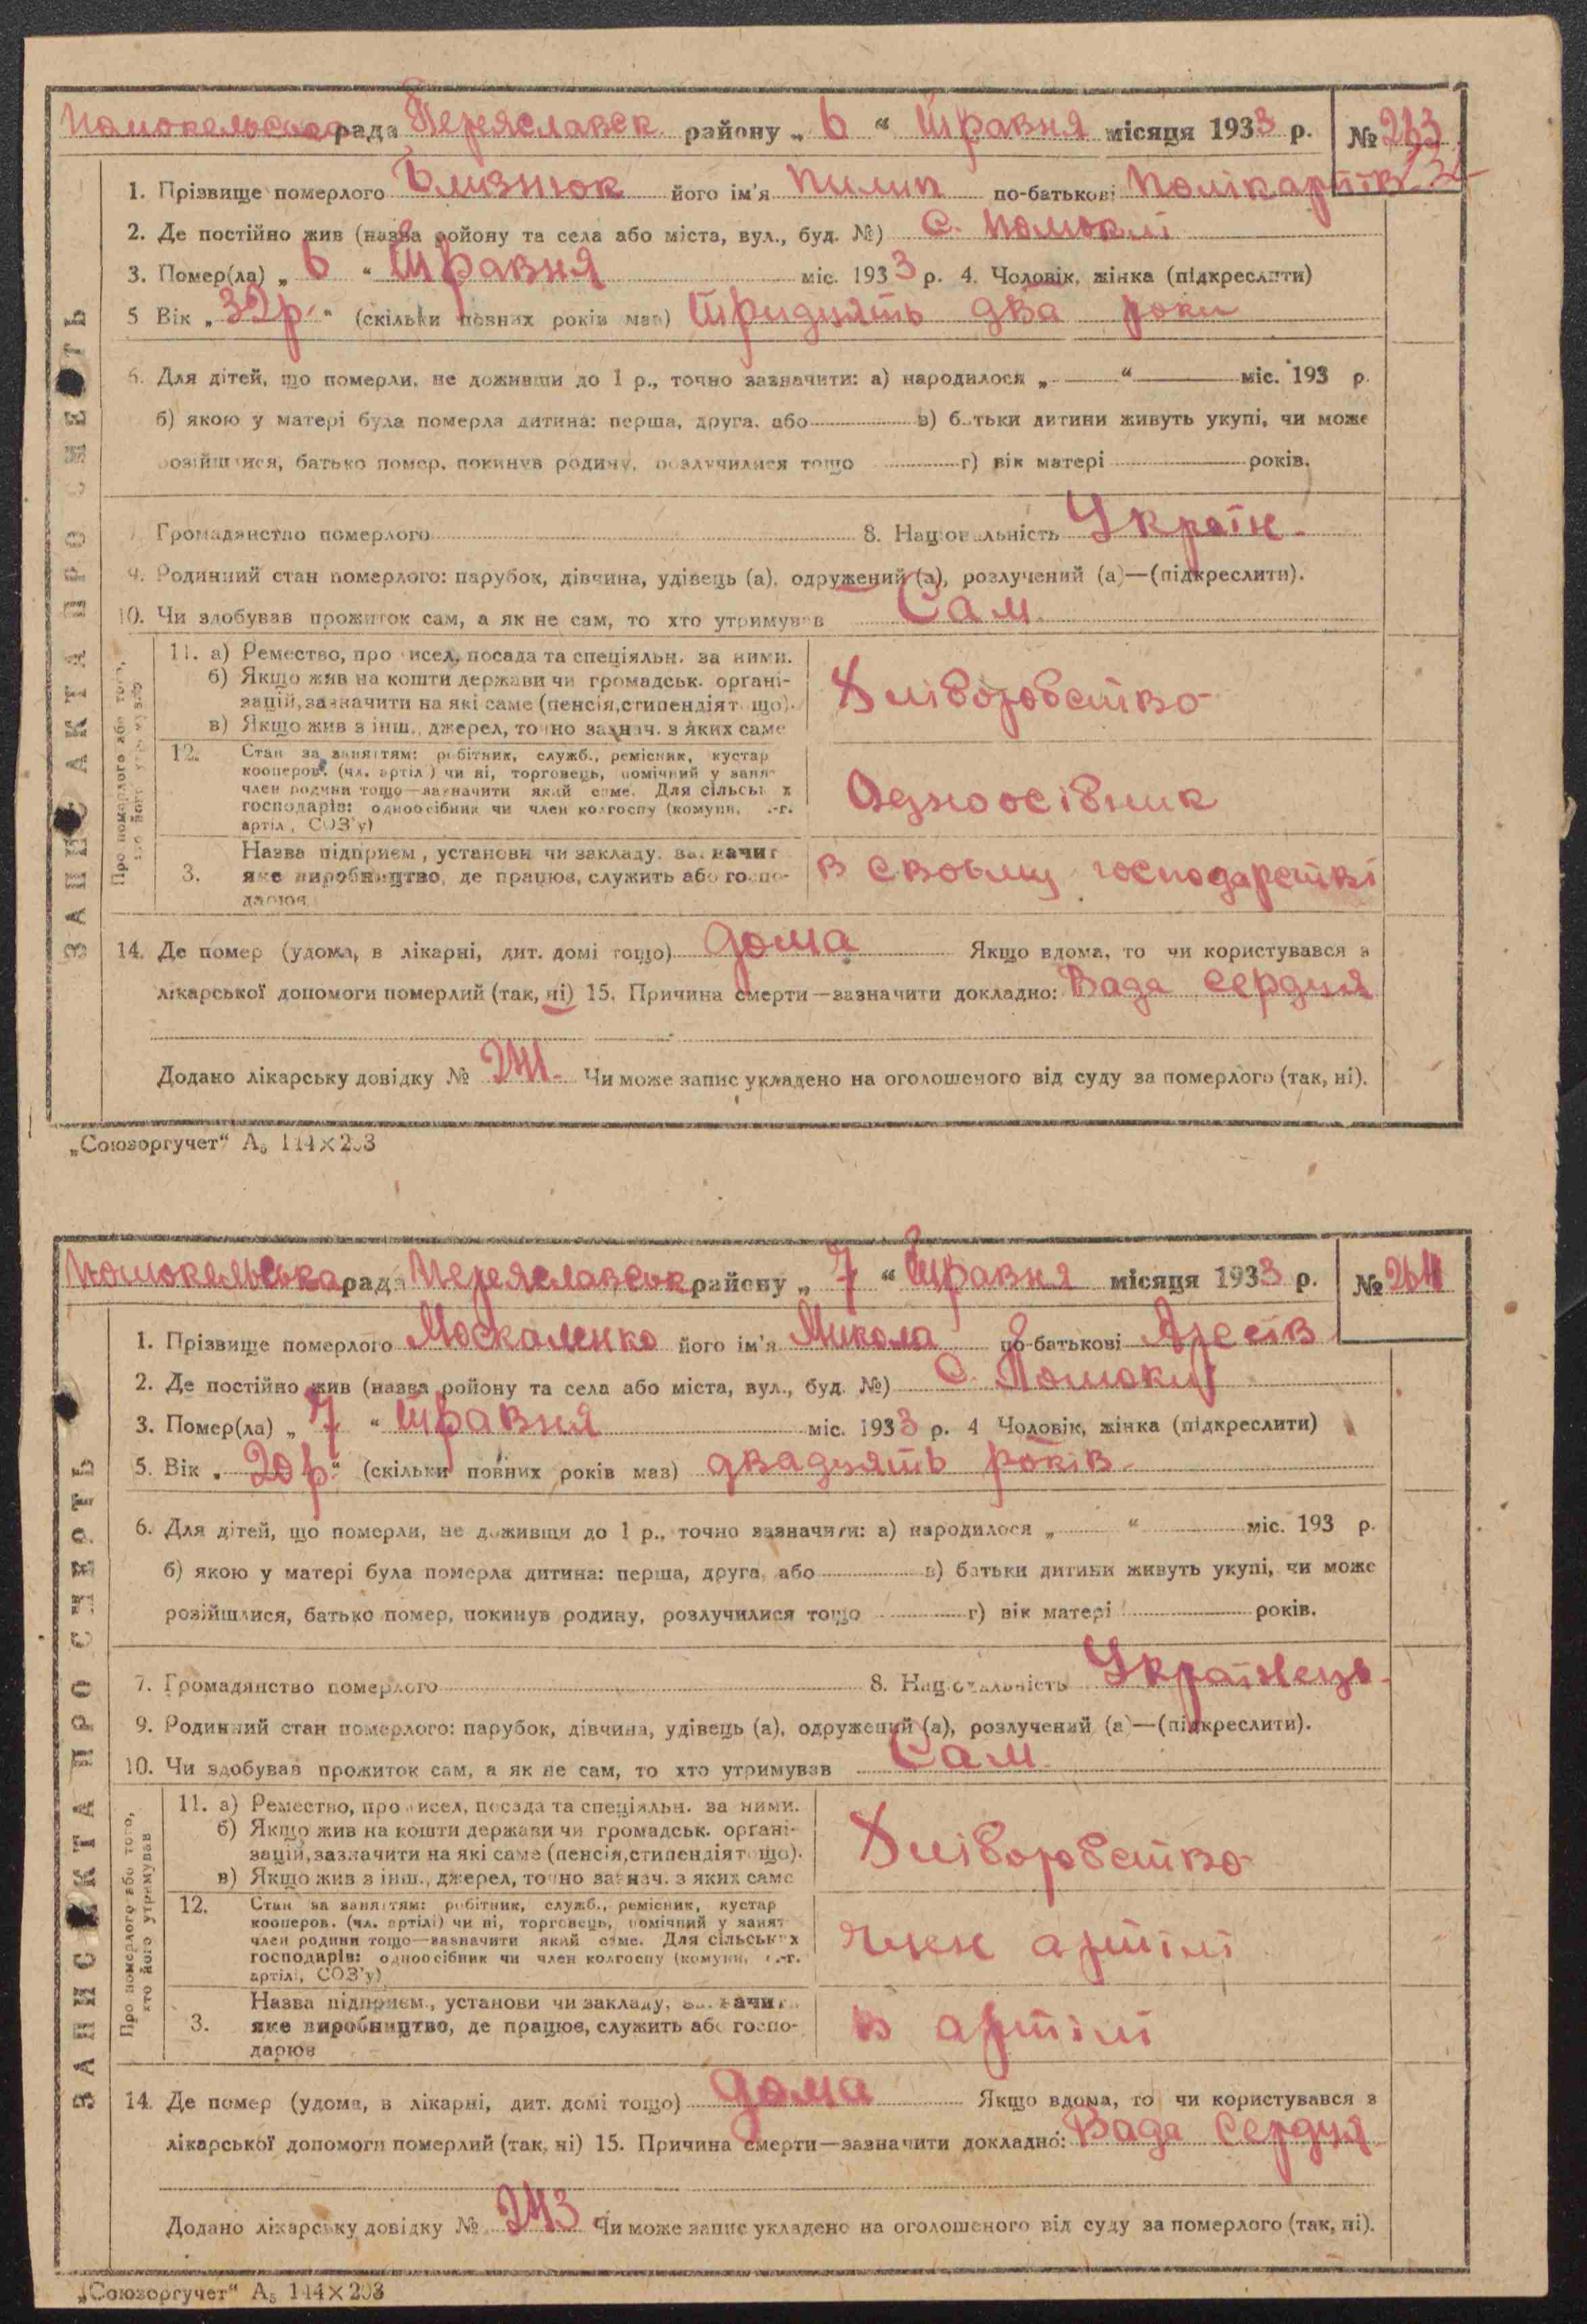 Помокельська рада Переяславск району „ 6 “ Травня місяця 1933 р. № 263
1. Прізвище померлого Близнюк його ім'я Пилип по-батькові Полікарпів
2. Де постійно жив (назва району та села або міста, вул., буд. №) С. Помоклі
3. Помер(ла) „ 6 “ Травня міс. 1933 р. 4. Чоловік, жінка (підкреслити)
5 Вік „ 32р. “ (скільки повних років мав) Тридцять два роки
6. Для дітей, що померли, не доживши до 1 р., точно зазначити: а) народилося „ “ міс. 193 р.
б) якою у матері була померла дитина: перша, друга, або в) батьки дитини живуть укупі, чи може
розійшлися, батько помер, покинув родину, розлучилися тощо г) вік матері років.
Громадянство померлого 8. Національність Україн.
9. Родинний стан померлого: парубок, дівчина, удівець (а), одружений (а), розлучений (а)—(підкреслити).
10. Чи здобував прожиток сам, а як не сам, то хто утримував Сам
Про померлого або того, хто його утримував
11. а) Ремество, промисел, посада та спеціяльн. за ними.
б) Якщо жив на кошти держави чи громадськ. організацій, зазначити на які саме (пенсія, стипендія тощо).
в) Якщо жив з інш., джерел, точно зазнач. з яких саме
Хліборобство
12. Стан за заняттям: робітник, служб., ремісник, кустар
кооперов. (чл. артілі) чи ні, торговець, помічний у занят
член родини тощо—зазначити який саме. Для сільських
господарів: одноосібник чи член колгоспу (комуни, с.-г.
артілі, СОЗ'у)
Одноосібник
3. Назва підприєм., установи чи закладу, зазначит
яке виробництво, де працював, служить або господарює
в своьму господарстві
14. Де помер (удома, в лікарні, дит. домі тощо) дома Якщо вдома, то чи користувався з
лікарської допомоги померлий (так, ні) 15. Причина смерти—зазначити докладно: Вада сердця
Додано лікарську довідку № 241. Чи може запис укладено на оголошеного від суду за померлого (так, ні).
ЗАПИС АКТА ПРО СМЕРТЬ
„Союзоргучет“ А5 144×203
Помокельська рада Переяславськ району „ 7 “ Травня місяця 1933 р. № 264
1. Прізвище померлого Москаленко його ім'я Микола по-батькові
2. Де постійно жив (назва району та села або міста, вул., буд. №) С. Помоклі
3. Помер(ла) „ 7 “ Травня міс. 1933 р. 4 Чоловік, жінка (підкреслити)
5. Вік „ 20р. “ (скільки повних років мав) двадцять років
6. Для дітей, що померли, не доживши до 1 р., точно зазначити: а) народилося „ “ міс. 193 р.
б) якою у матері була померла дитина: перша, друга, або в) батьки дитини живуть укупі, чи може
розійшлися, батько помер, покинув родину, розлучилися тощо г) вік матері років.
7. Громадянство померлого 8. Національність Українець
9. Родинний стан померлого: парубок, дівчина, удівець (а), одружений (а), розлучений (а)—(підкреслити).
10. Чи здобував прожиток сам, а як не сам, то хто утримував Сам
Про померлого або того, хто його утримував
11. а) Ремество, промисел, посада та спеціяльн. за ними.
б) Якщо жив на кошти держави чи громадськ. організацій, зазначити на які саме (пенсія, стипендія тощо).
в) Якщо жив з інш., джерел, точно зазнач. з яких саме
Хліборобство
12. Стан за заняттям: робітник, служб., ремісник, кустар
кооперов. (чл. артілі) чи ні, торговець, помічний у занят
член родини тощо—зазначити який саме. Для сільських
господарів: одноосібник чи член колгоспу (комуни, с.-г.
артілі, СОЗ'у)
член артілі
3. Назва підприєм., установи чи закладу, зазначит
яке виробництво, де працює, служить або господарює
в артілі
14. Де помер (удома, в лікарні, дит. домі тощо) дома Якщо вдома, то чи користувався з
лікарської допомоги померлий (так, ні) 15. Причина смерти—зазначити докладно: Вада сердця
Додано лікарську довідку № 243 Чи може запис укладено на оголошеного від суду за померлого (так, ні).
ЗАПИС АКТА ПРО СМЕРТЬ
„Союзоргучет“ А5 144×203